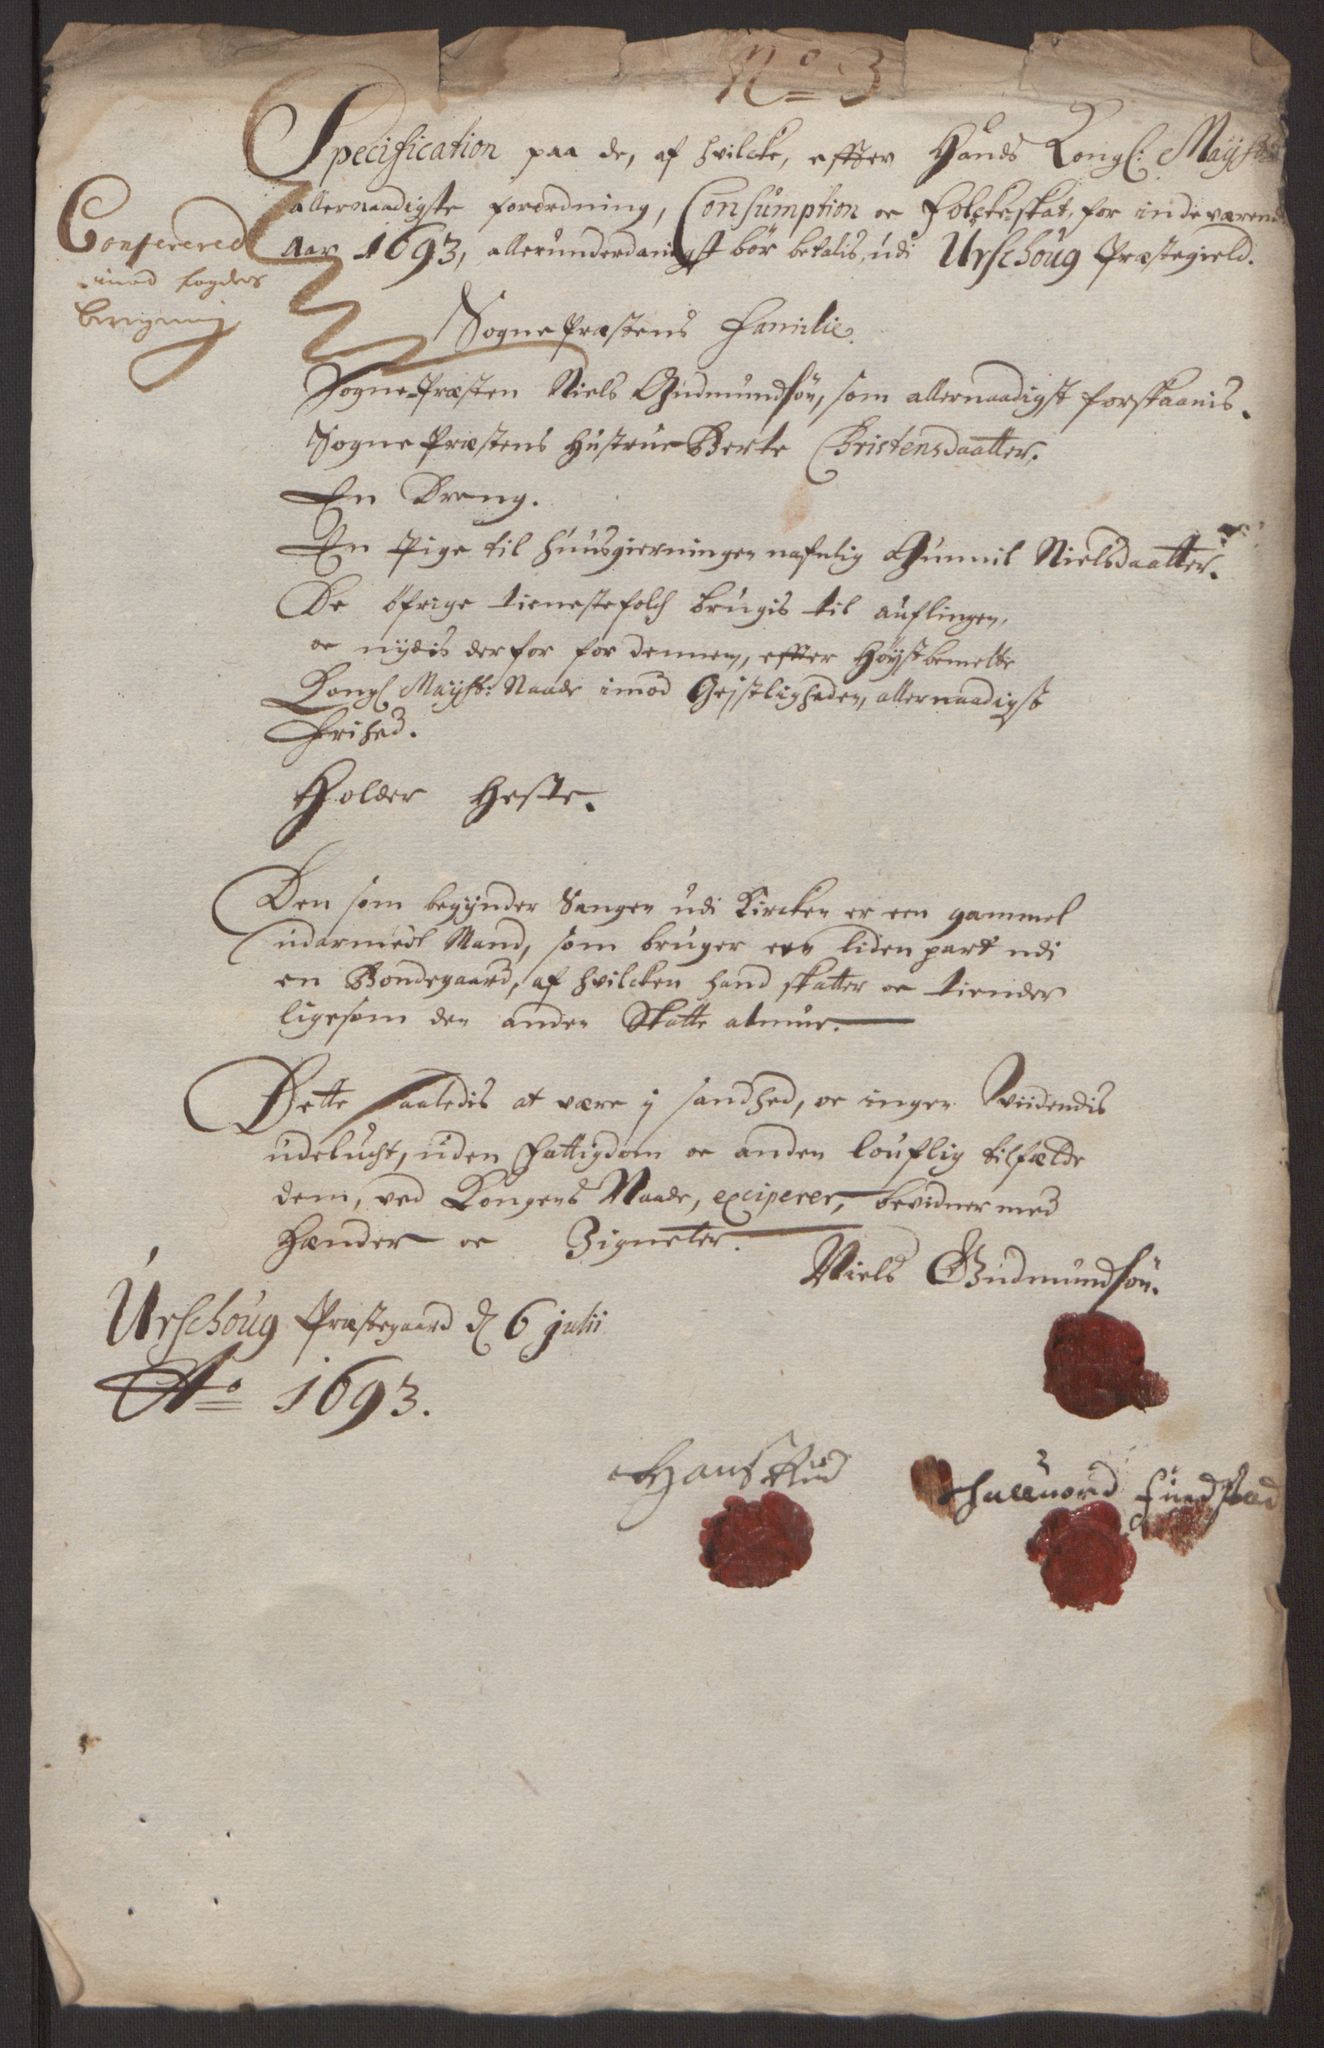 No 3
Specification paa de, af hvilcke, effter Hands Kongl: Mayst:
allernaadigste forordning, Consumption oc folckeskat, for indeværende
Aar 1693, allerunderdanigst bör betalis, udi Urschoug Præstegield.
Conferered
imod fogdens
SognePræstens Familie.
Sogne-Præsten Niels Gudmundsön, som allernaadigst forskaanis.
SognePræstens Hustrue Berte Christensdaatter.
En Dreng.
En Pige til huusgierningen nafnlig Gunnil Nielsdaatter.
De öfrige tienestefolch brugis til auflingen,
oc nydis derfor for dennem, effter Höystbemelte
Kongl Mayst: Naade imod Gejstligheden, allernaadigst
frihed.
Holder Heste.
Den som begynder Sangen udi Kircken er een gammel
udarmedt Mand, som bruger een liden part udi
en Bondegaard, af hvilcken hand skatter oc tiender
ligesom den anden Skatte almue.
Dette saaledis at være j sandhed, oc ingen viidendis
udelucht, uden fattigdom oc anden louflig tilfælde
dem, ved Kongens Naade, exciperer, bevidner med
Hænder oc Zigneter.
Niels Gudmundsön.
Urschoug Præstegaard d 6 julii
Ao 1693.
Hans Rud
Halluord Fundstad